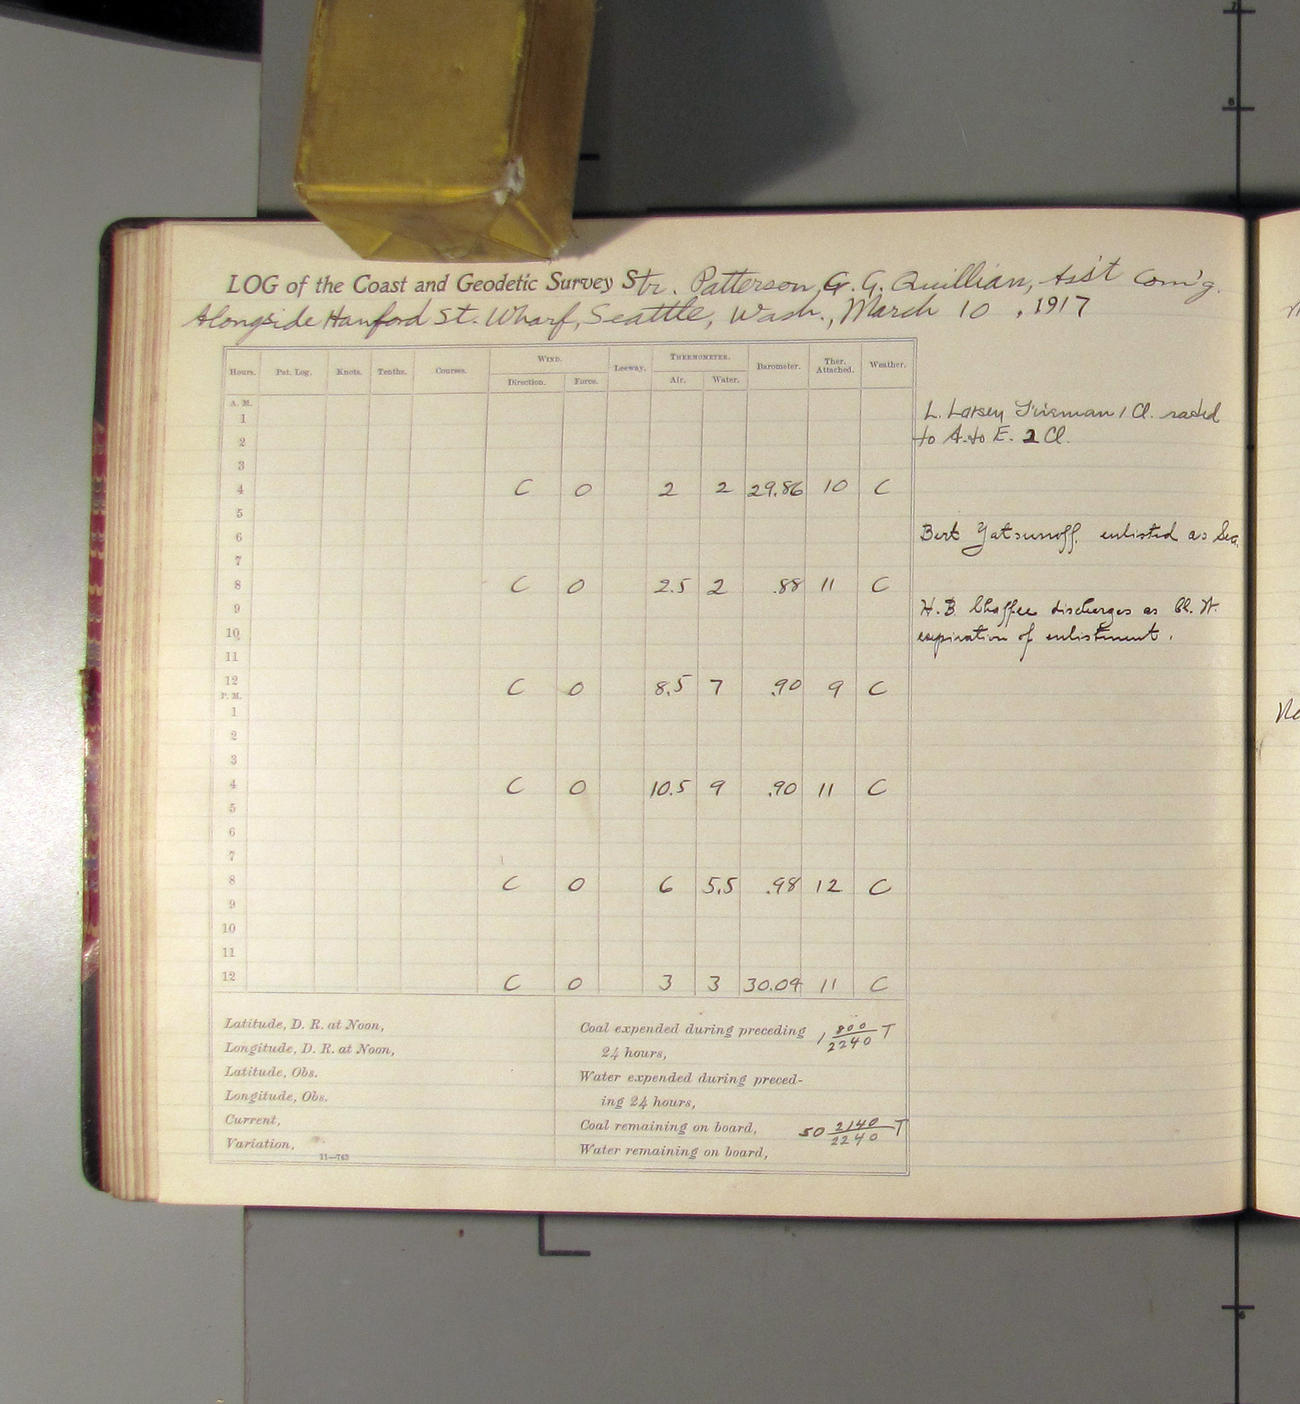 LOG of the Coast and Geodetic Survey Str. Patterson, G. G. Quillian, Ass't Com'g.
Alongside Hanford St. Wharf, Seattle, Wash., March 10, 1917
WIND. THERMOMETER.
Hours. Pat. Log. Knots. Tenths. Courses. Leeway. Barometer. Ther. Attached. Weather.
Direction. Force. Air. Water.
A. M.
1
2
3
4 C 0 2 2 29.86 10 C
5
6
7
8 C 0 2.5 2 .88 11 C
9
10
11
12 C 0 8.5 7 .90 9 C
P. M.
1
2
3
4 C 0 10.5 9 .90 11 C
5
6
7
8 C 0 6 5.5 .98 12 C
9
10
11
12 C 0 3 3 30.04 11 C
L. Larsen Fireman 1 Cl. rated
to A. to E. 2 Cl.
Bert enlisted as Sea.
H. B. Chaffee discharges as
expiration of enlistment.
Latitude, D. R. at Noon,
Longitude, D. R. at Noon,
Latitude, Obs.
Longitude, Obs.
Current,
Variation,
11—763
Coal expended during preceding 1 800/2240 T
24 hours,
Water expended during preced-
ing 24 hours,
Coal remaining on board, 50 2140/2240 T
Water remaining on board,